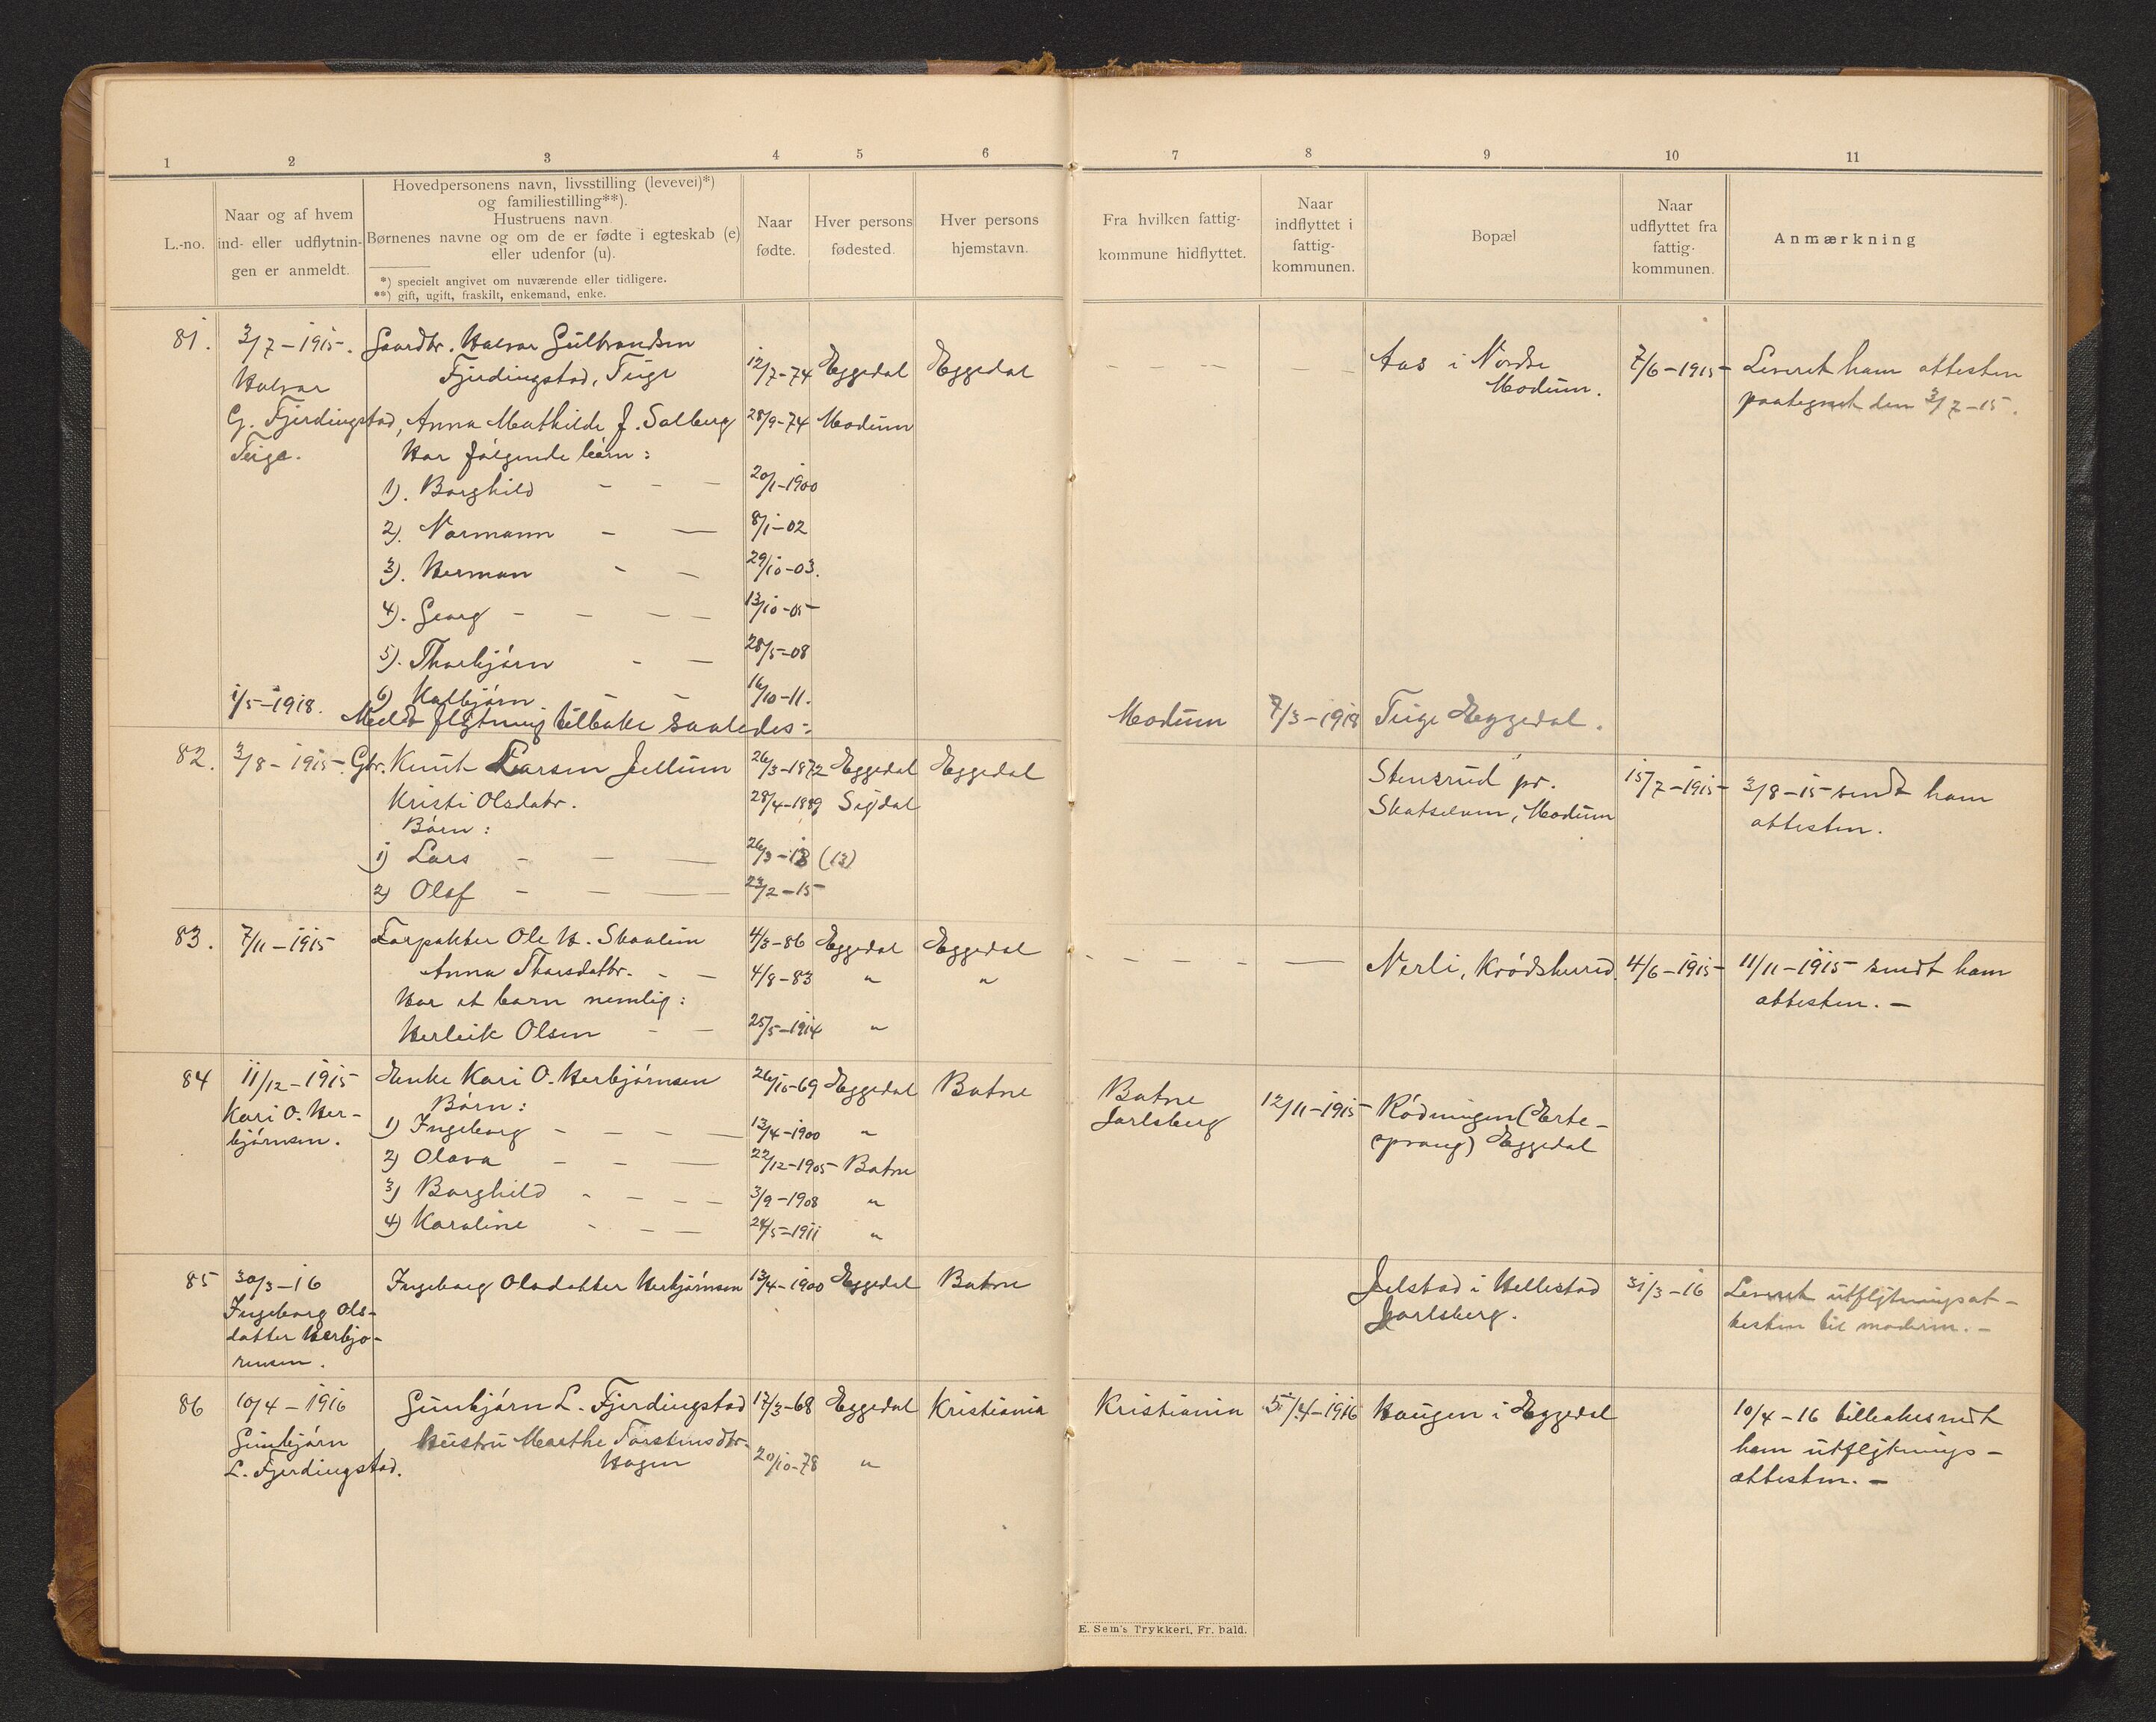 1 2 3 4 5 6 7 8 9 10 11
L.-no.
Naar og af hvem
ind- eller udflytnin-
gen er anmeldt.
Hovedpersonens navn, livsstilling (levevei)*)
og familiestilling**).
Hustruens navn.
Børnenes navne og om de er fødte i egteskab (e)
eller udenfor (u).
*) specielt angivet om nuværende eller tidligere.
**) gift, ugift, fraskilt, enkemand, enke.
Naar
fødte.
Hver persons
fødested.
Hver persons
hjemstavn.
Fra hvilken fattig-
kommune hidflyttet.
Naar
indflyttet i
fattig-
kommunen.
Bopæl
Naar
udflyttet fra
fattig-
kommunen.
Anmærkning
81. 3/7-1915. Gaardbr. Halvar Gulbrandsen
Halvar Fjerdingstad, Teige 12/7-74 Eggedal Eggedal - - - - - - Aas i Nordre Modum. 7/6-1915- Leveret ham attesten
G. Fjerdingstad, Anna Mathilde J. Solberg 28/9-74 Modum paategnet den 3/7-15.
Teige. Har følgende børn:
1). Borghild - - - 20/1-1900
2). Normann - - 8/1-02
3). Herman - - 29/10-03.
4). Georg - - - - 13/10-05-
5). Thorbjørn - - 28/5-08
6) Halbjørn - - 16/10-11.
1/5-1918. Meldt flytning tilbake saaledes: Modum 7/3-1918 Teige Eggedal.
82. 3/8-1915-. Gbr. Knut Larsen Jellum 26/3-1872 Eggedal Eggedal Stensrud pr. 15/7-1915- 3/8-15- sendt ham
Kristi Olsdatr. 28/4-1889 Sigdal Skotselven, Modum attesten.
Børn:
1) Lars - - - 26/3-13 (13)
2) Olaf - - - 23/2-15-
83. 7/11-1915 Forpakter Ole H. Skaalim 4/3-86 Eggedal Eggedal - - - - - Nerli, Krødsherred. 4/6-1915- 11/11-1915- sendt ham
Anna Thorsdatbr. - - 4/8-83 " " attesten. -
Har et barn nemlig:
Herleik Olsen - - 25/5-1914 "
84 11/12-1915 Enke Kari O. Herbjørnsen 26/10-69 Eggedal Botne Botne 12/11-1915- Rødningen (Erte-
Kari O. Her- Børn: Jarlsberg sprang) Eggedal
bjørnsen. 1) Ingeborg - - - - 13/4-1900 "
2) Olava - - - 22/12-1905- Botne
3) Borghild - - - - 3/9-1908 "
4) Karoline - - - 24/5-1911 "
85 30/3-16 Ingeborg Olsdatter Herbjørnsen 13/4-1900 Eggedal Botne Jelstad i Hillestad 31/3-16 Leveret utflytningsat-
Ingeborg Ols- Jarlsberg. testen til moderen. -
datter Herbjø-
rnsen.
86 10/4-1916 Gunbjørn L. Fjerdingstad 17/3-68 Eggedal Kristiania Kristiania 5/4-1916 Haugen i Eggedal 10/4-16 tilbakesendt
Gunbjørn Hustru Marthe Torstensdtr. ham utflytnings-
L. Fjerdingstad. Hagen 20/10-78 " attesten. -
E. Sem's Trykkeri, Fr. hald.